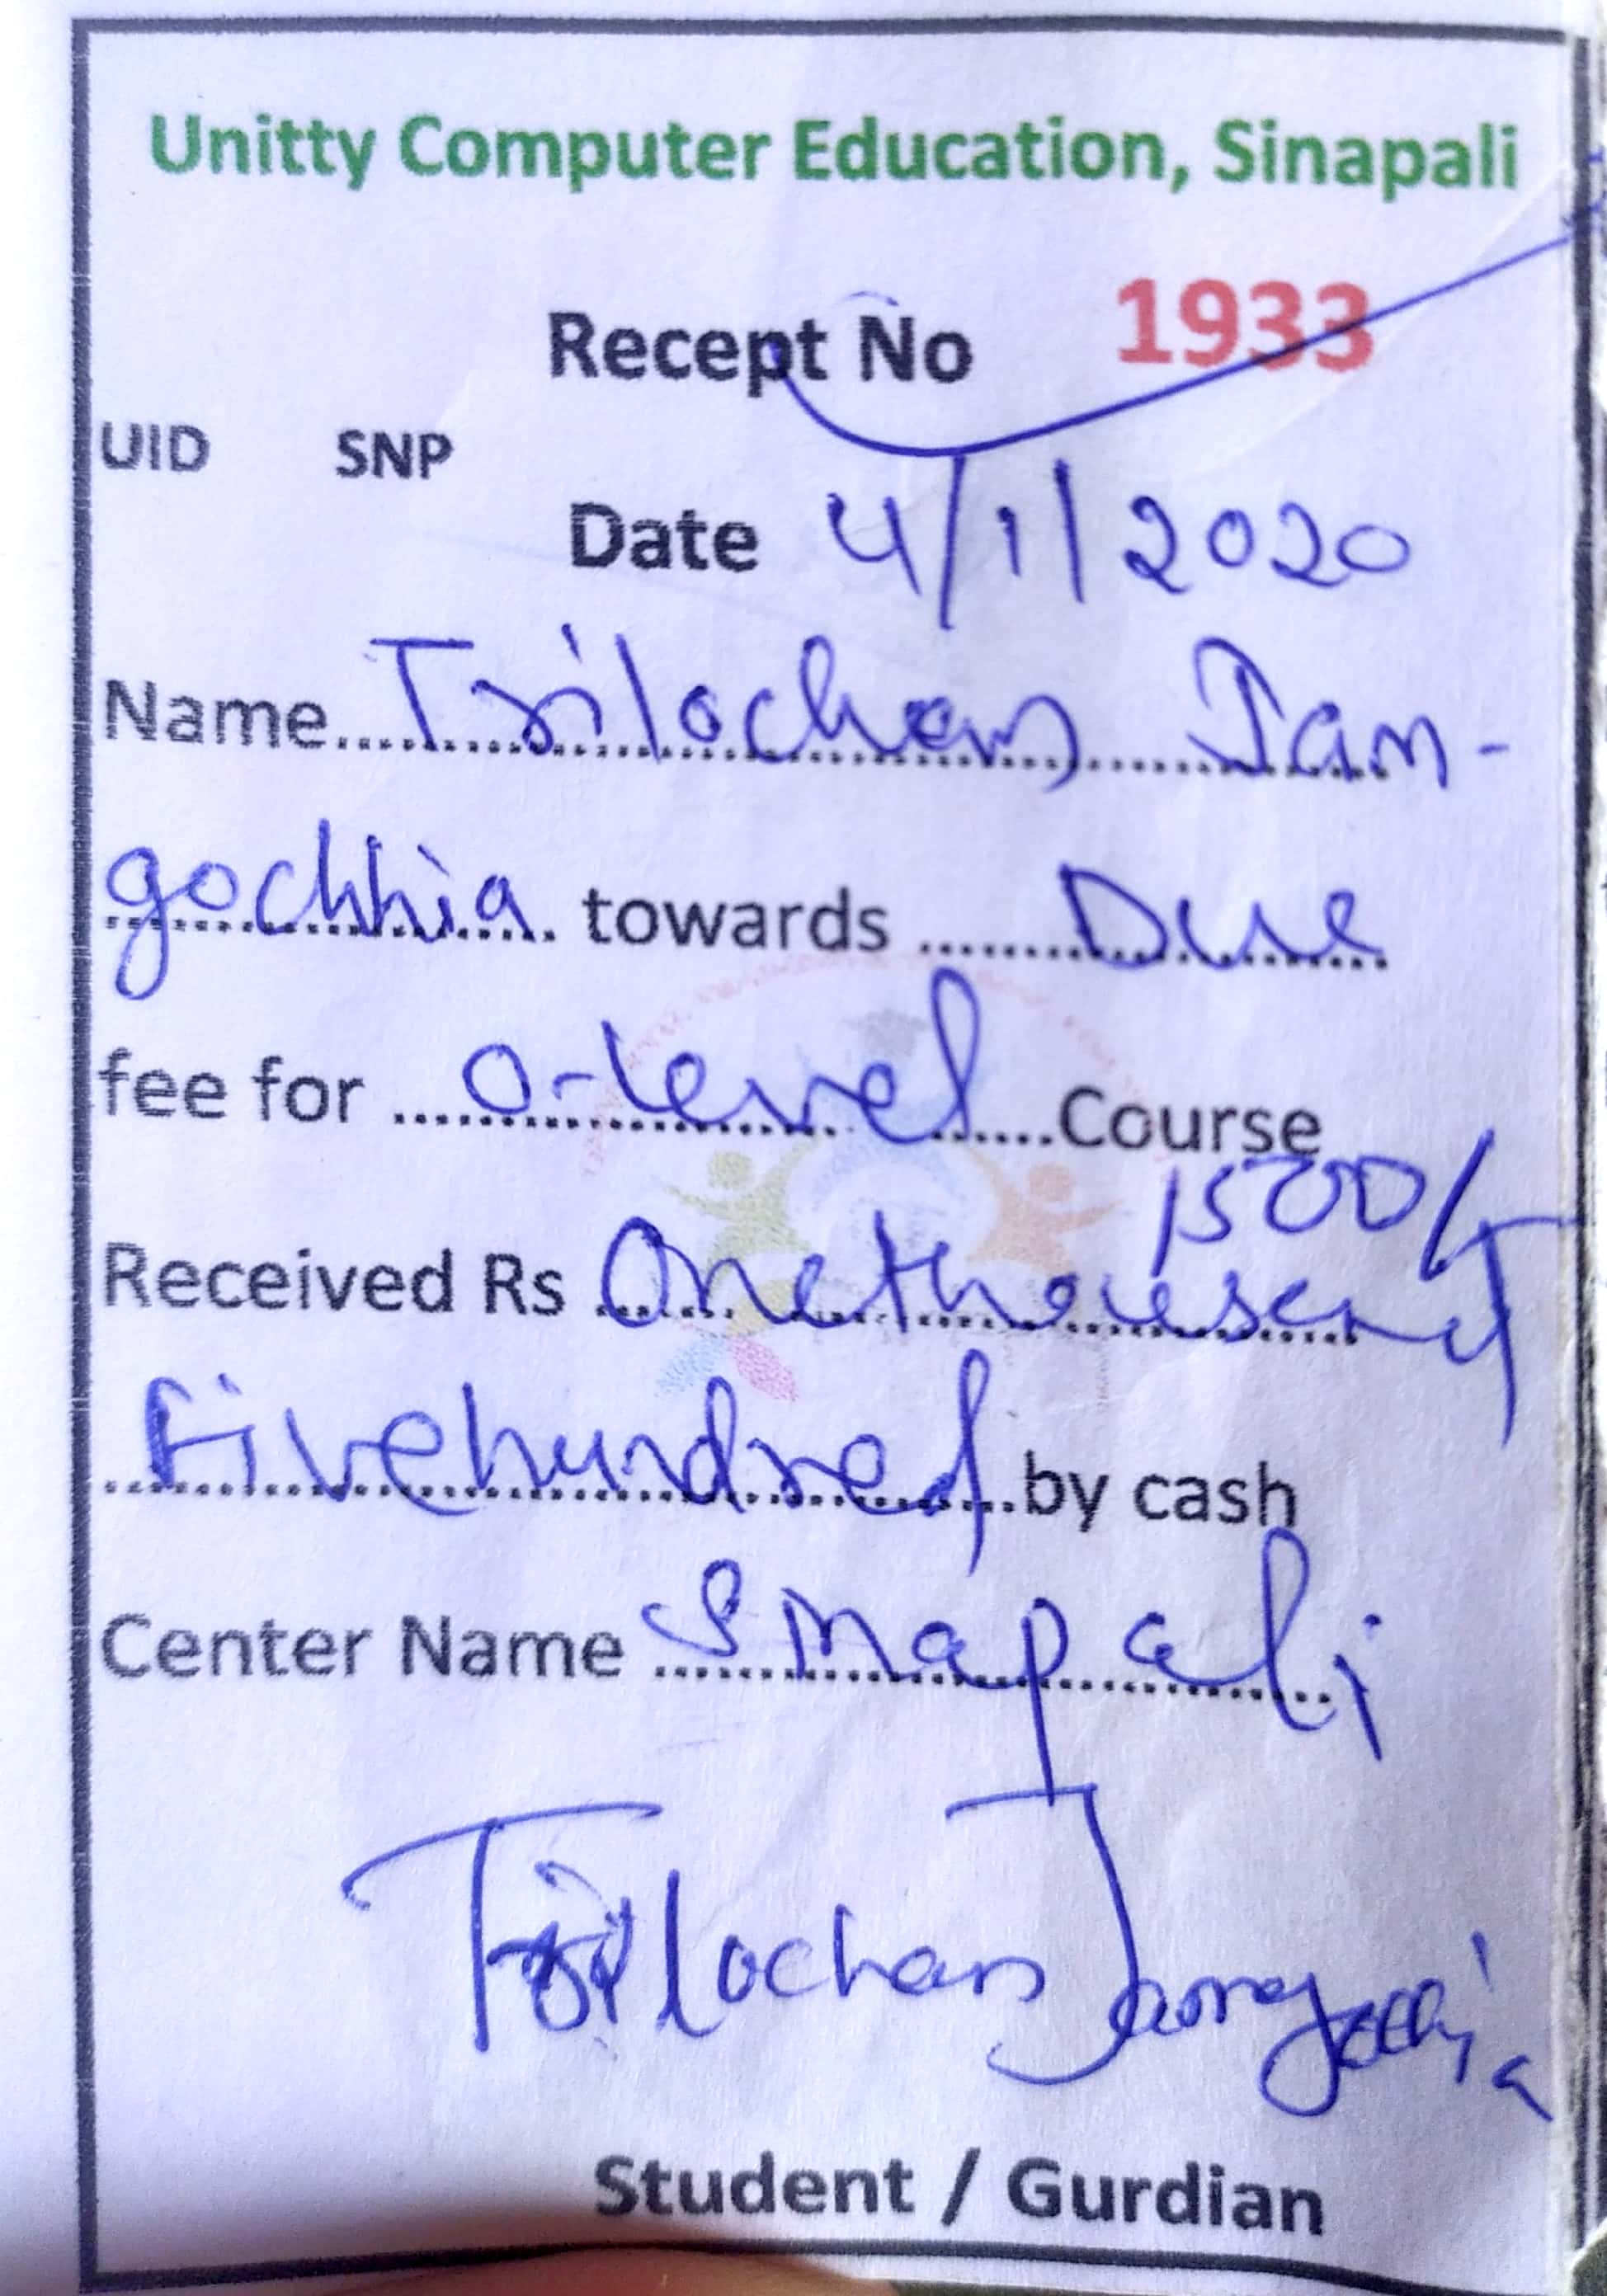 Unitty Computer Education, Sinapali
Recept No 1933
UID SNP
Date 4/1/2020
Name Trilochan Jan-
gochhia towards Due
fee for O-Level Course
1500/-
Received Rs Onethousand
Fivehundred by cash
Center Name Sinapali
Trilochan Jangochhia
Student / Gurdian